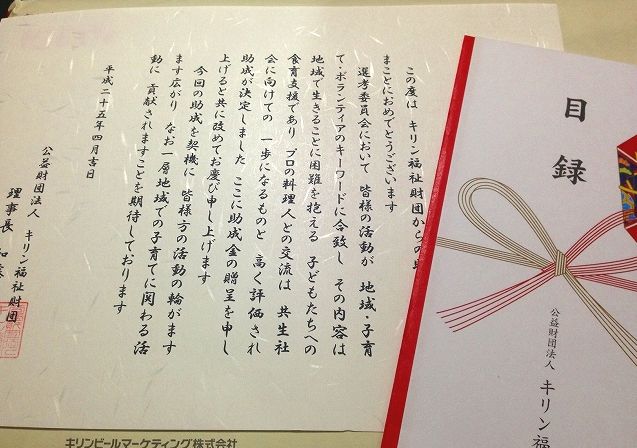 この度は キリン福祉財団からの
まことにおめでとうございます
選考委員会において 皆様の活動が 地域・子育
て・ボランティアのキーワードに合致し その内容は
地域で生きることに困難を抱える 子どもたちへの
食育支援であり プロの料理人との交流は 共生社
会に向けての 一歩になるものと 高く評価され
助成が決定しました ここに助成金の贈呈を申し
上げると共に改めてお慶び申し上げます
今回の助成を契機に 皆様方の活動の輪がます
ます広がり なお一層地域での子育てに関わる活
動に 貢献されますことを期待しております
平成二十五年四月吉日
公益財団法人 キリン福祉財団
理事長
目録
公益財団法人 キリン福
キリンビールマーケティング株式会社